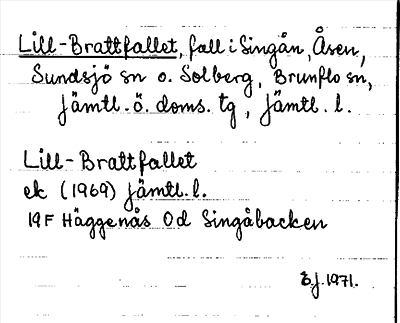 Lill-Brattfallet, fall i Singån, Åsen,
Sundsjö sn o. Solberg, Brunflo sn,
Jämtl. ö. doms. tg, Jämtl. l.
Lill-Brattfallet
ek (1969) Jämtl. l.
19F Häggenås 0d Singåbacken
E.J. 1971.